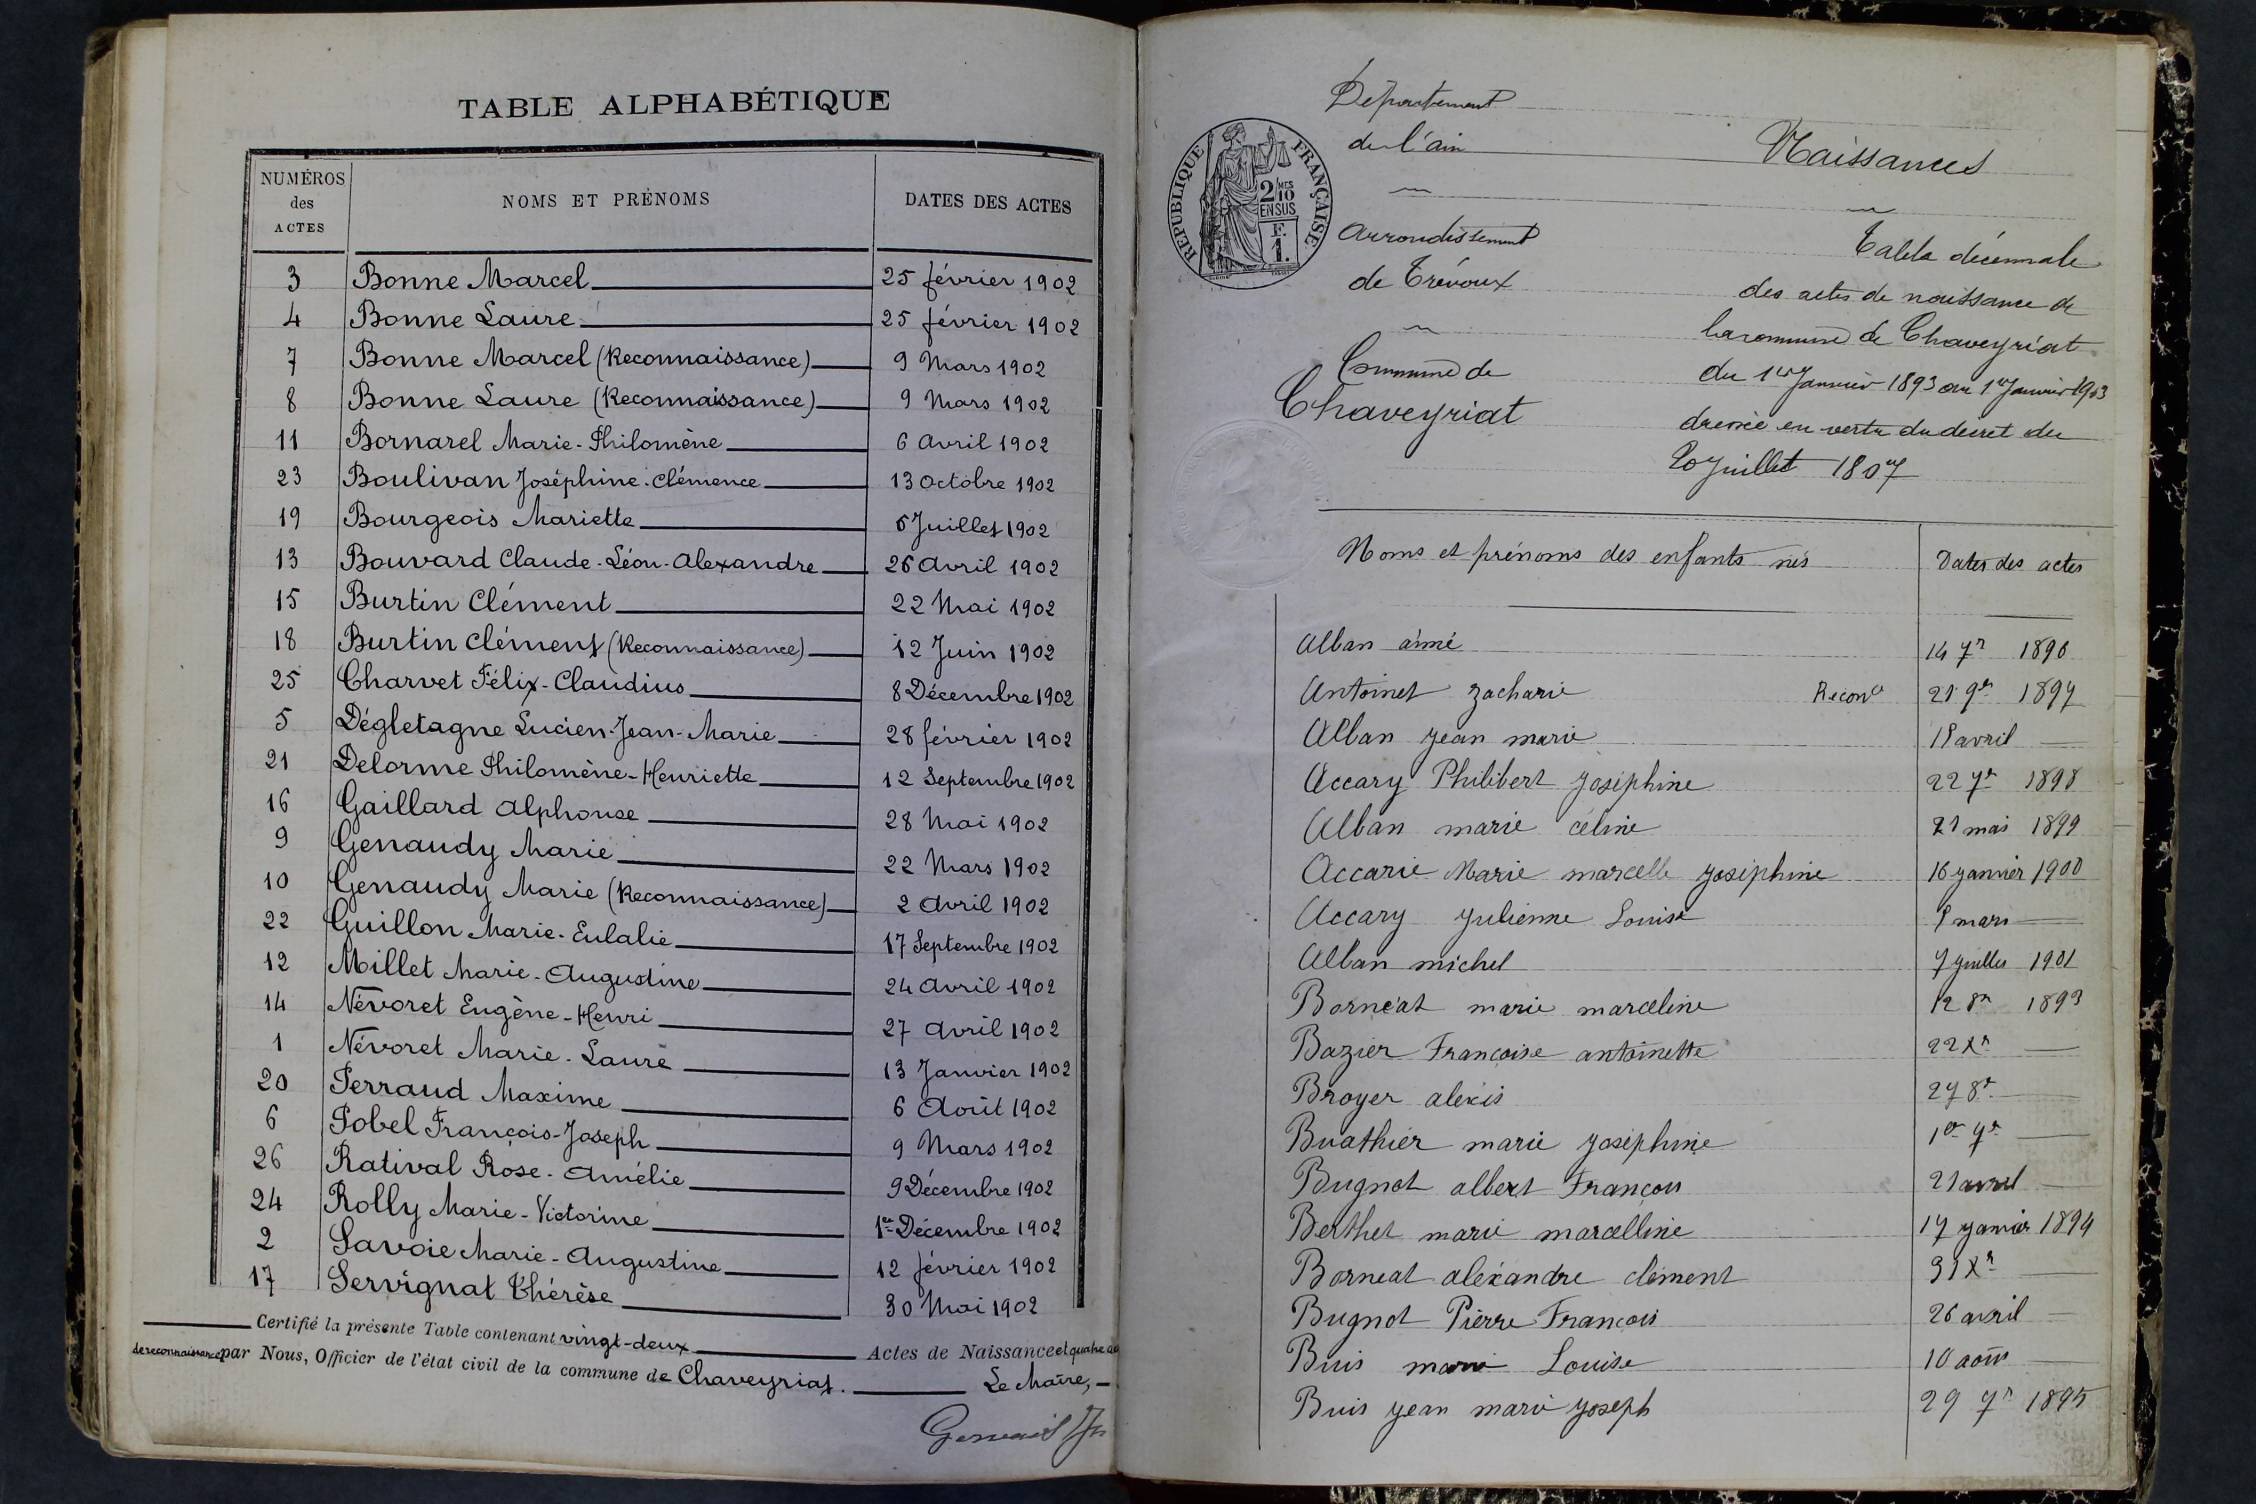 TABLE ALPHABÉTIQUE
NUMÉROS des ACTES NOMS ET PRÉNOMS DATES DES ACTES
3 Bonne Marcel 25 février 1902
4 Bonne Laure 25 février 1902
7 Bonne Marcel (Reconnaissance) 9 Mars 1902
8 Bonne Laure (Reconnaissance) 9 Mars 1902
11 Bornarel Marie-Philomène 6 Avril 1902
23 Boulivan Joséphine-Clémence 13 Octobre 1902
19 Bourgeois Mariette 5 Juillet 1902
13 Bouvard Claude-Léon-Alexandre 26 Avril 1902
15 Burtin Clément 22 Mai 1902
18 Burtin Clément (Reconnaissance) 12 Juin 1902
25 Charvet Félix-Claudius 8 Décembre 1902
5 Dégletagne Lucien-Jean-Marie 28 février 1902
21 Delorme Philomène-Henriette 12 Septembre 1902
16 Gaillard Alphonse 28 Mai 1902
9 Genaudy Marie 22 Mars 1902
10 Genaudy Marie (Reconnaissance) 2 Avril 1902
22 Guillon Marie-Eulalie 17 Septembre 1902
12 Millet Marie-Augustine 24 Avril 1902
14 Névoret Eugène-Henri 27 Avril 1902
1 Névoret Marie-Laure 13 Janvier 1902
20 Perraud Maxime 6 Août 1902
6 Pobel François-Joseph 9 Mars 1902
26 Ratival Rose-Amélie 9 Décembre 1902
24 Rolly Marie-Victorine 1er Décembre 1902
2 Savoie Marie-Augustine 12 février 1902
17 Servignat Thérèse 30 Mai 1902
Certifié la présente Table contenant vingt-deux Actes de Naissance et quatre
de reconnaissance par Nous, Officier de l'état civil de la commune de Chaveyriat. Le Maire,
Gervais
Département
de l'ain
Arrondissement
de Trévoux
Commune de
Chaveyriat
RÉPUBLIQUE FRANÇAISE
2/10 MES
EN SUS
F.
1.
Naissances
Table décennale
des actes de naissance de
la commune de Chaveyriat
du 1er Janvier 1893 au 1er Janvier 1903
dressée en vertu du decret du
20 Juillet 1807
Noms et prénoms des enfants nés Dates des actes
Alban aimé 14 7r 1896
Antoinet zacharie Recone 21 9re 1897
Alban jean marie 18 avril
Accary Philibert Joséphine 22 7r 1898
Alban marie céline 21 mai 1899
Accarie Marie marcelle joséphine 16 janvier 1900
Accary julienne Louise 8 mars
Alban michel 7 juillet 1901
Bornéat marie marceline 12 8r 1893
Bazier Françoise antoinette 22 Xr
Broyer alexis 27 8r
Buathier marie joséphine 1er 7r
Bugnot albert François 21 avril
Berthet marie marcelline 17 janvier 1894
Borneat aléxandre clément 31 Xr
Bugnot Pierre François 26 avril
Buis marie Louise 10 août
Buis jean marie joseph 29 7r 1895